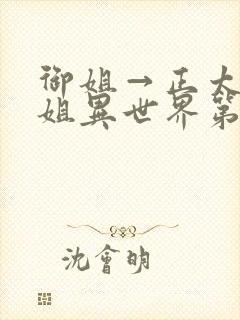 御姐→正太
姐異世界第
沈會明